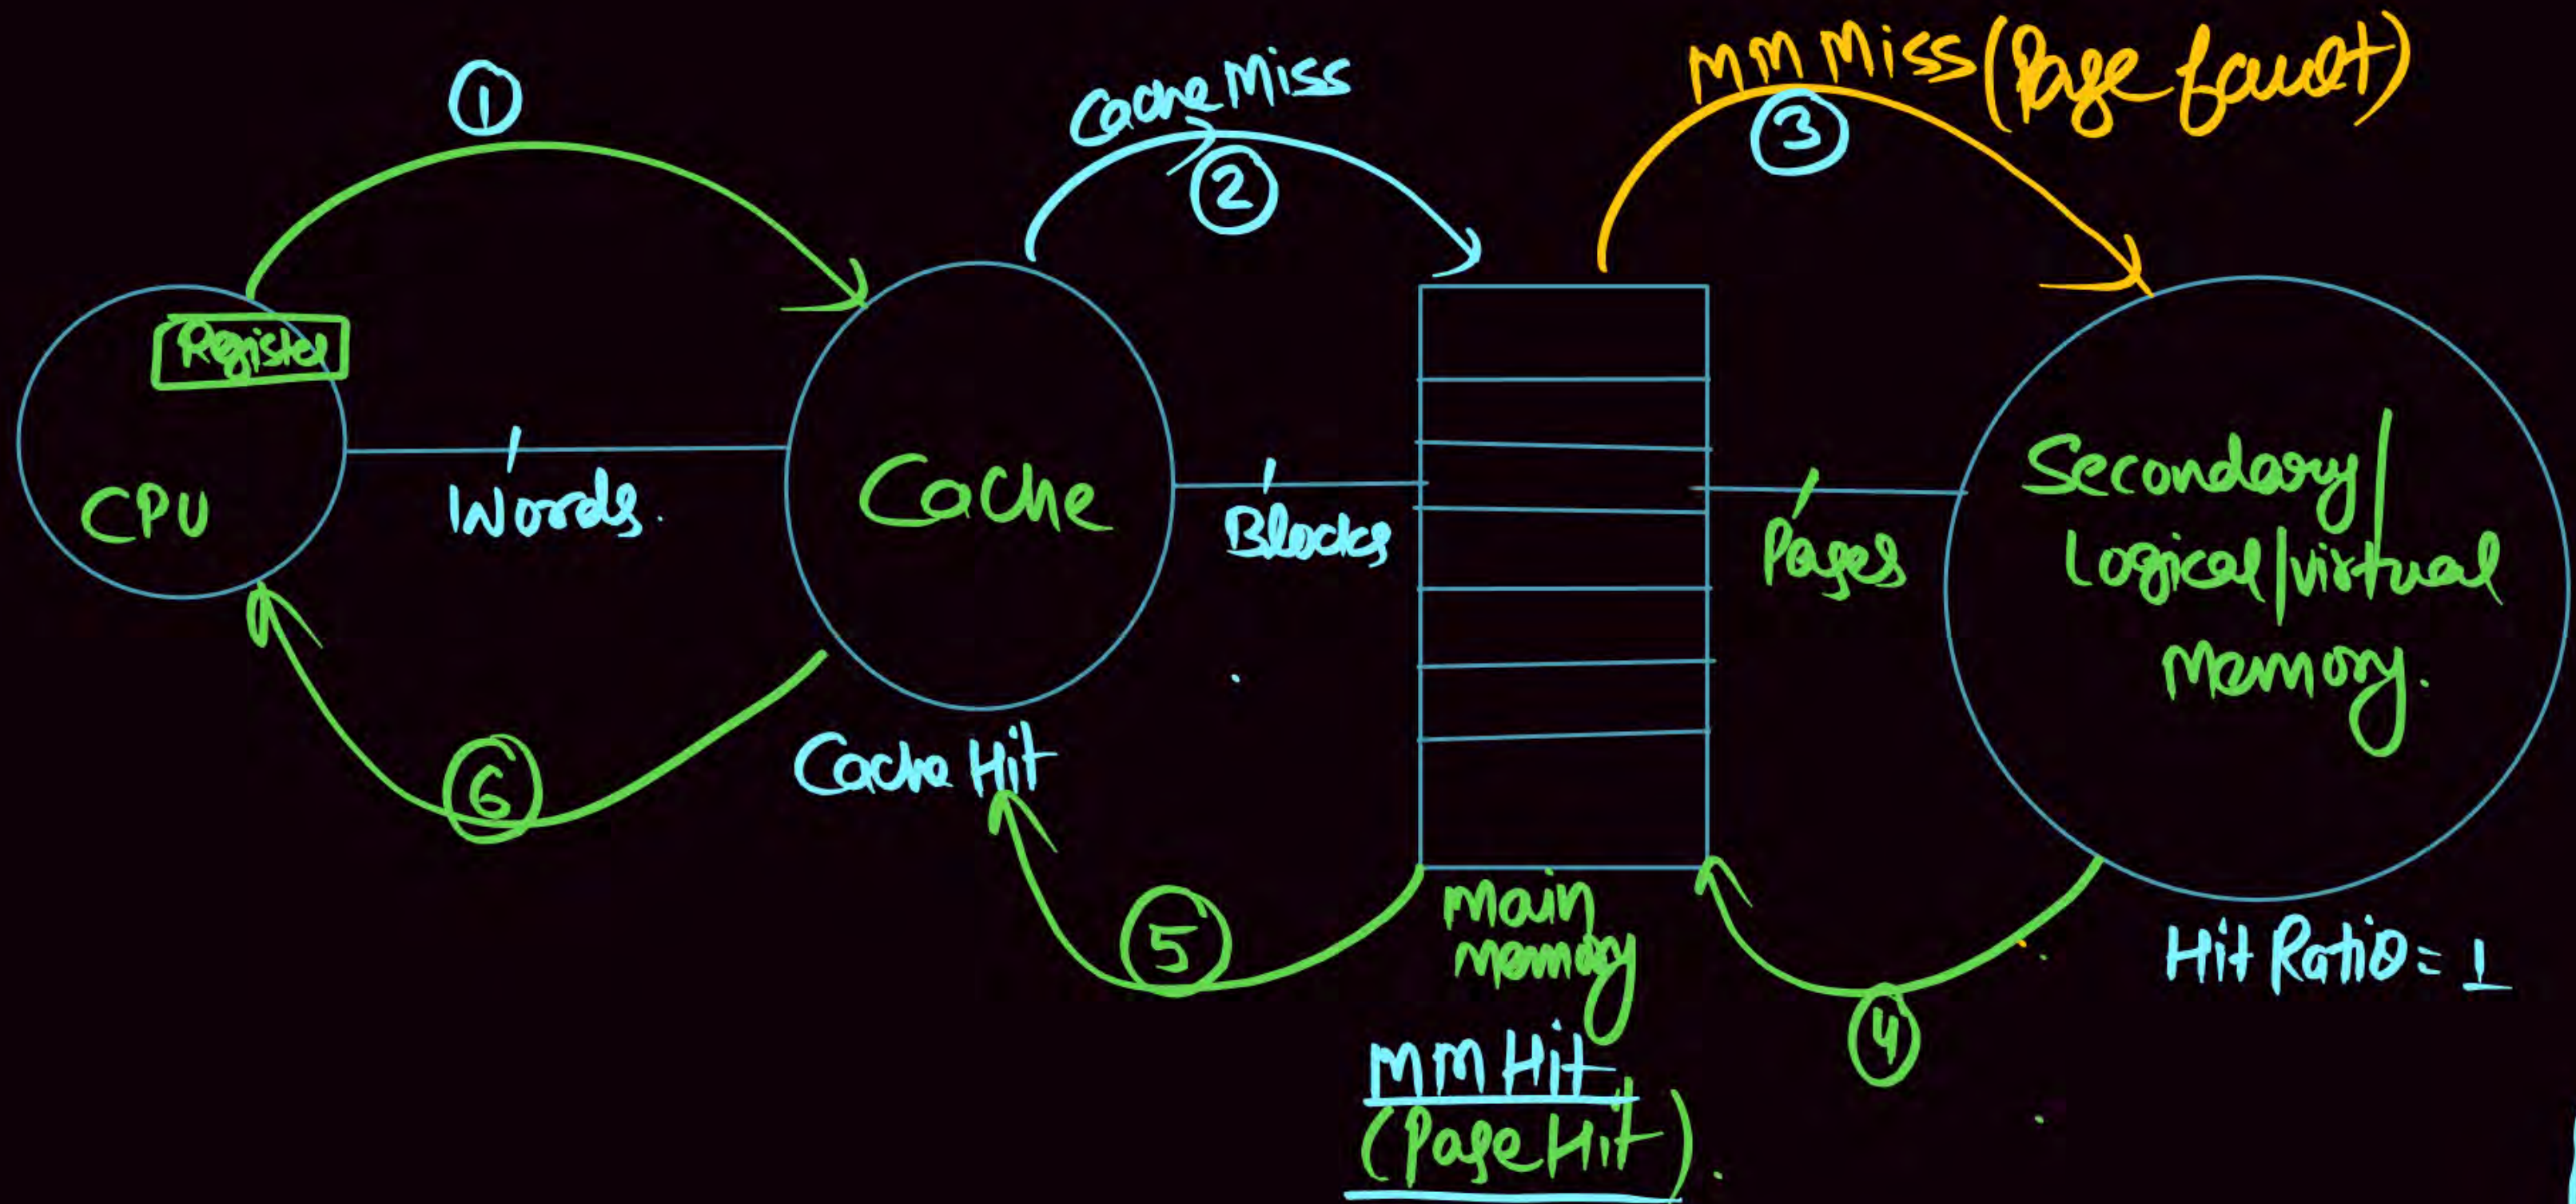 ①
Cache Miss
②
MM Miss (Page fault)
③
Register
CPU
Words.
Cache
Blocks
Pages
Secondary/
Logical/virtual
Memory.
⑥
Cache Hit
⑤
Main
memory
④
Hit Ratio = 1
MM Hit
(Page Hit).